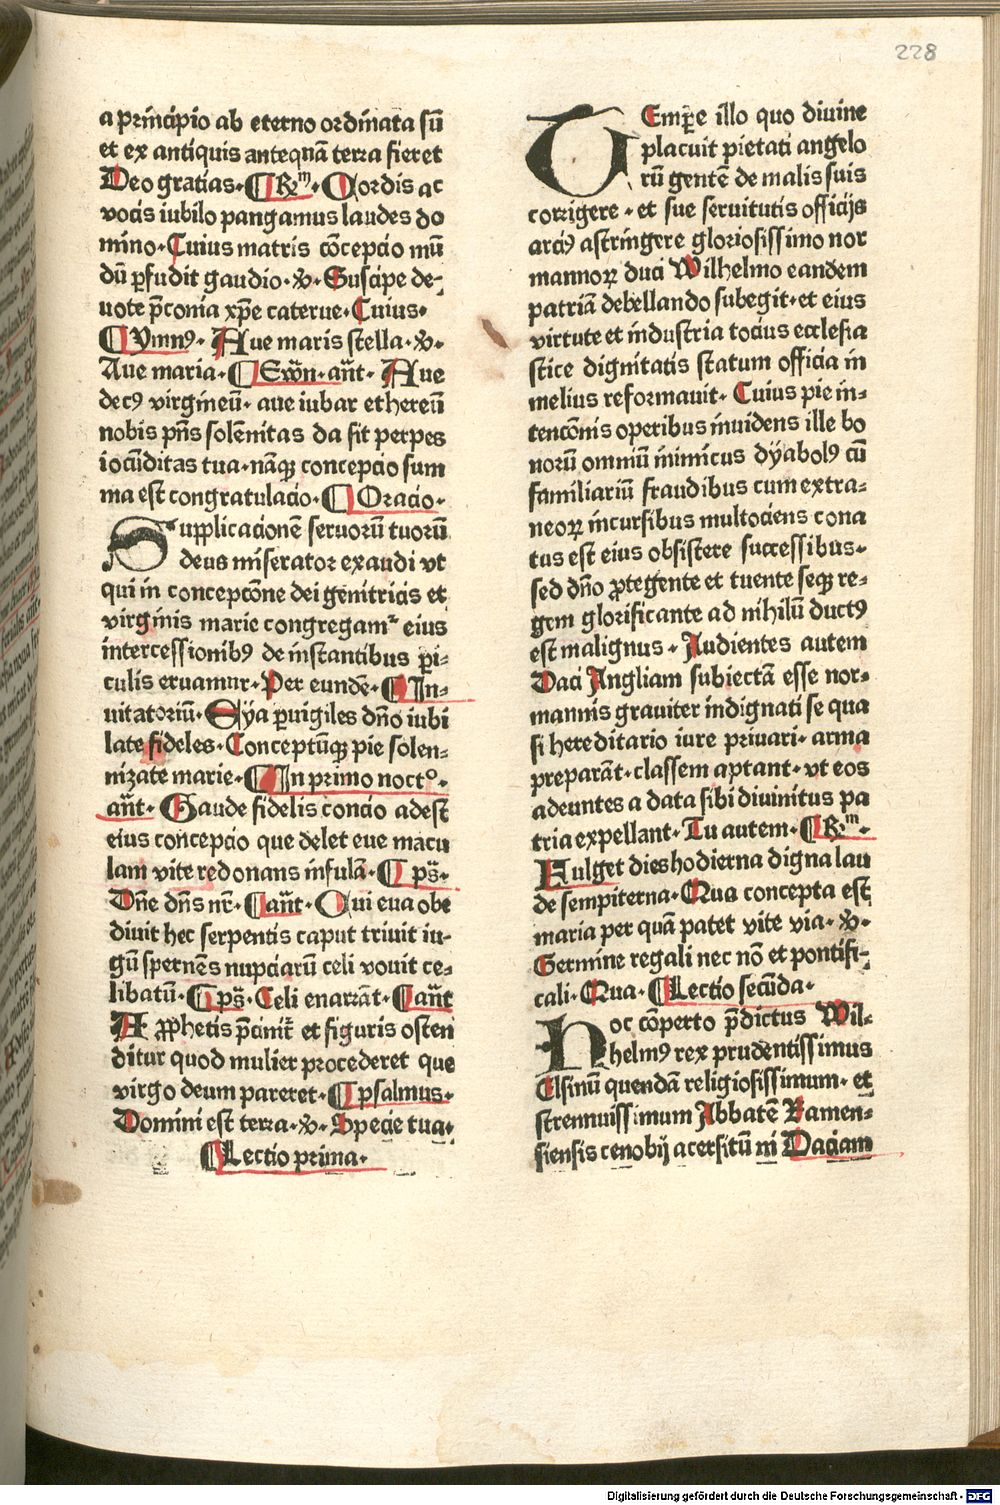 228
a principio ab eterno ordinata sū
et ex antiquis anteqnā terra fieret
Deo gratias. ¶ Rm̄. Cordis ac
vocis iubilo pangamus laudes do
mino. Cuius matris cōcepcio mū
dū ꝑfudit gaudio. v̄. Suscipe de-
uote p̄conia xp̄e caterue. Cuius.
¶ Ymnꝰ. Aue maris stella. v̄.
Aue maria. ¶ Ewn̄. an̄t. Aue
decꝰ virgineū. aue iubar ethereū
nobis pn̄s solēnitas da sit perpes
iocūditas tua. nāqꝫ concepcio sum
ma est congratulacio. ¶ Oracio.
Supplicacionē seruorū tuorū
deus miserator exaudi vt
qui in concepcōne dei genitricis et
virginis marie congregamr̄ eius
intercessionibꝰ de instantibus ꝑi-
culis eruamur. Per eundē. ¶ In-
uitatoriū. Eya ꝑuigiles dn̄o iubi
late fideles. Conceptūqꝫ pie solen-
nizate marie. ¶ In primo nocto.
an̄t. Gaude fidelis concio adest
eius concepcio que delet eue macu
lam vite redonans infulā. ¶ ps̄.
Dn̄e dn̄s nr̄. ¶ an̄t. Qui eua obe
diuit hec serpentis caput triuit iu-
gū spernēs nupciarū celi vouit ce-
libatū. ¶ ps̄. Celi enarrāt. ¶ an̄t
A ꝓphetis p̄cinit̄ et figuris osten
ditur quod mulier procederet que
virgo deum pareret. ¶ psalmus.
Domini est terra. v̄. Specie tua.
¶ Lectio prima.
TEmꝑe illo quo diuine
placuit pietati angelo
rū gentē de malis suis
corrigere. et sue seruitutis officijs
arciꝰ astringere gloriosissimo nor
mannoꝝ duci Wilhelmo eandem
patriā debellando subegit. et eius
virtute et industria tocius ecclesia
stice dignitatis statum officia in
melius reformauit. Cuius pie in-
tencōnis operibus inuidens ille bo
norū omniū inimicus dyabolꝰ cū
familiariū fraudibus cum extra-
neoꝝ incursibus multociens cona
tus est eius obsistere successibus.
sed dn̄o ꝓtegente et tuente seqꝫ re-
gem glorificante ad nihilū ductꝰ
est malignus. Audientes autem
Daci Angliam subiectā esse nor-
mannis grauiter indignati se qua
si hereditario iure priuari. arma
preparāt. classem aptant. vt eos
adeuntes a data sibi diuinitus pa
tria expellant. Tu autem. ¶ Rm̄.
Fulget dies hodierna digna lau
de sempiterna. Qua concepta est
maria per quā patet vite via. v̄.
Germine regali nec nō et pontifi-
cali. Qua. ¶ Lectio secūda.
Hoc cōperto p̄dictus Wil-
helmꝰ rex prudentissimus
Elsinū quendā religiosissimum. et
strennuissimum Abbatē Ramen-
siensis cenobij acersitū in Daciam
Digitalisierung gefördert durch die Deutsche Forschungsgemeinschaft - DFG